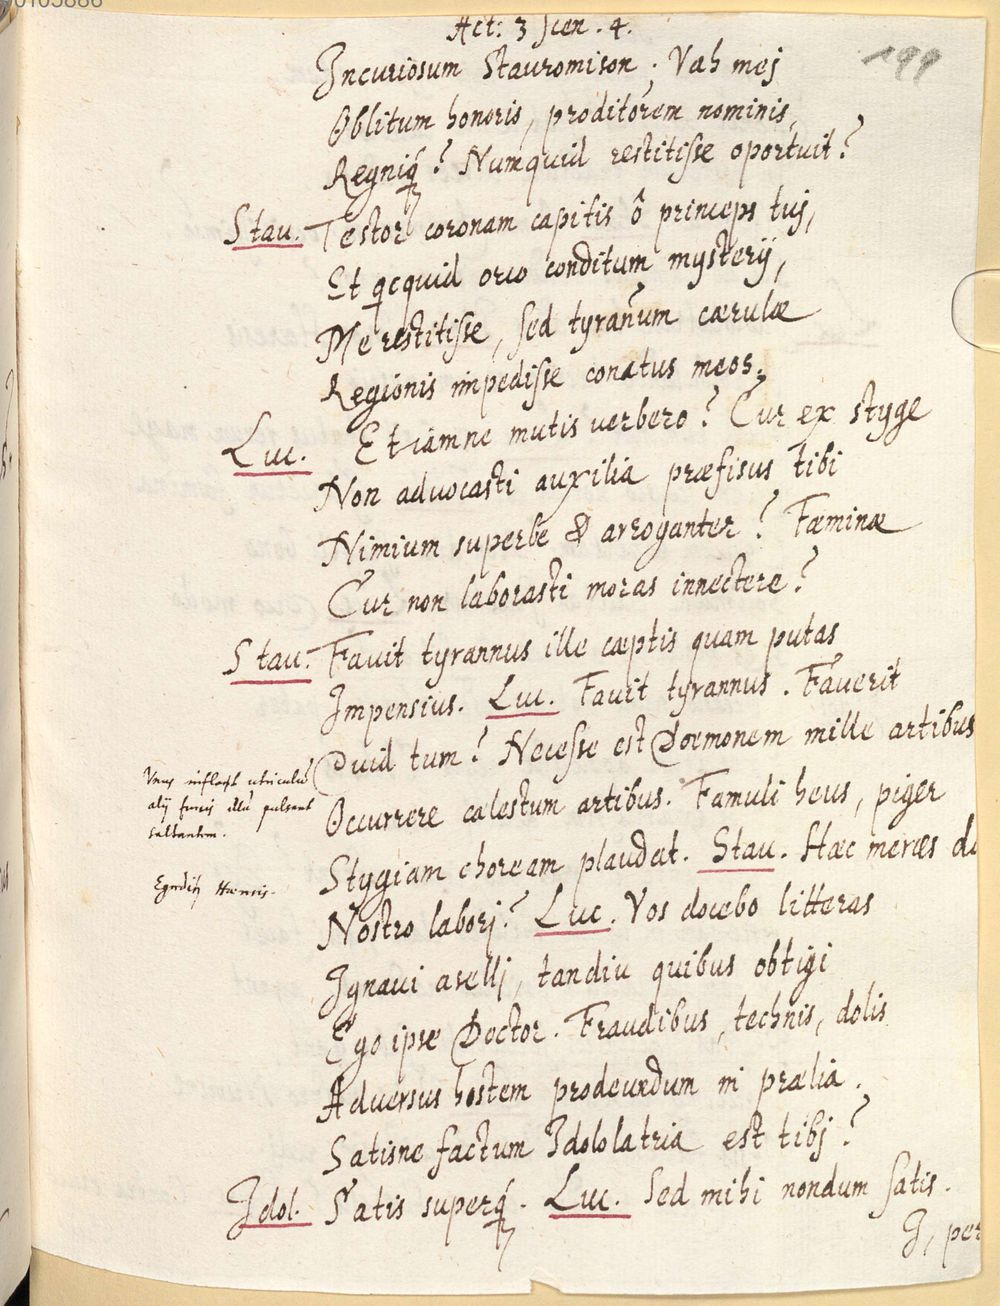 00105886
Act: 3 Scen. 4.
199
Incuriosum Stauromison. Vah mej
Oblitum honoris, proditorem nominis,
Regniq́? Numquid restitisse oportuit?
Stau. Testor coronam capitis ô princeps tuj,
Et qcquid orco conditum mysterij,
Me restitisse, sed tyrañum cærulæ
Regionis impedisse conatus meos.
Luc. Etiamne mutis verbero? Cur ex styge
Non advocasti auxilia præfisus tibi
Nimium superbe & arroganter? Fæminæ
Cur non laborasti moras innectere?
Stau. Favit tyrannus ille cæptis quam putas
Impensius. Luc. Favit tyrannus. Faverit
Quid tum? Necesse est Dæmonem mille artibus
Occurrere cælestum artibus. Famuli heus, piger
Stygiam choream plaudat. Stau. Hæc merces
Nostro laborj? Luc. Vos docebo litteras
Ignavi asellj, tandiu quibus obtigi
Ego ipse Doctor. Fraudibus, technis, dolis
Adversus hostem prodeundum in prælia.
Satisne factum Idololatria est tibj?
Idol. Satis superq́. Luc. Sed mihi nondum satis.
I, per
Unus inflat utriculũ
alij illũ pulsant
saltantem.
Egreditur Hæresis.